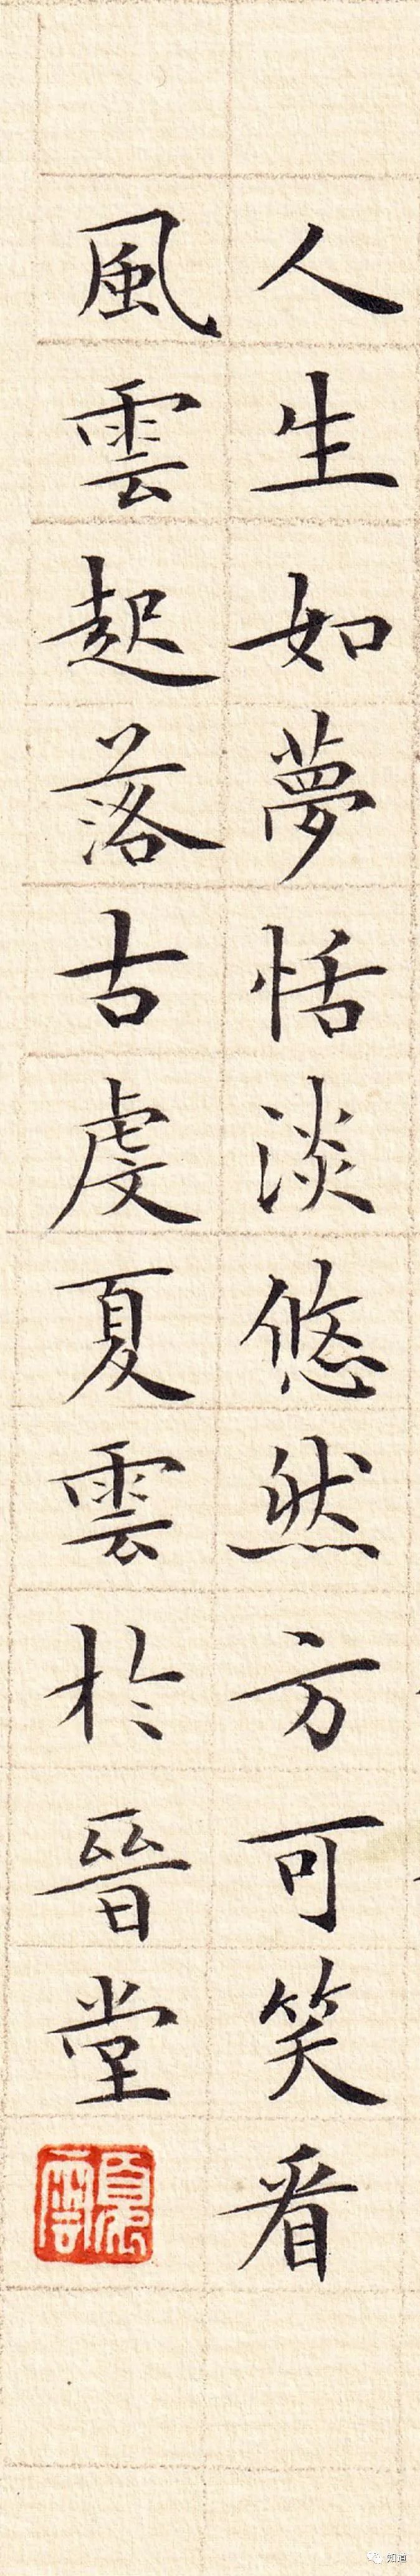 人生如夢恬淡悠然方可笑看
風雲起落古虔夏雲於晉堂
夏雲
知道